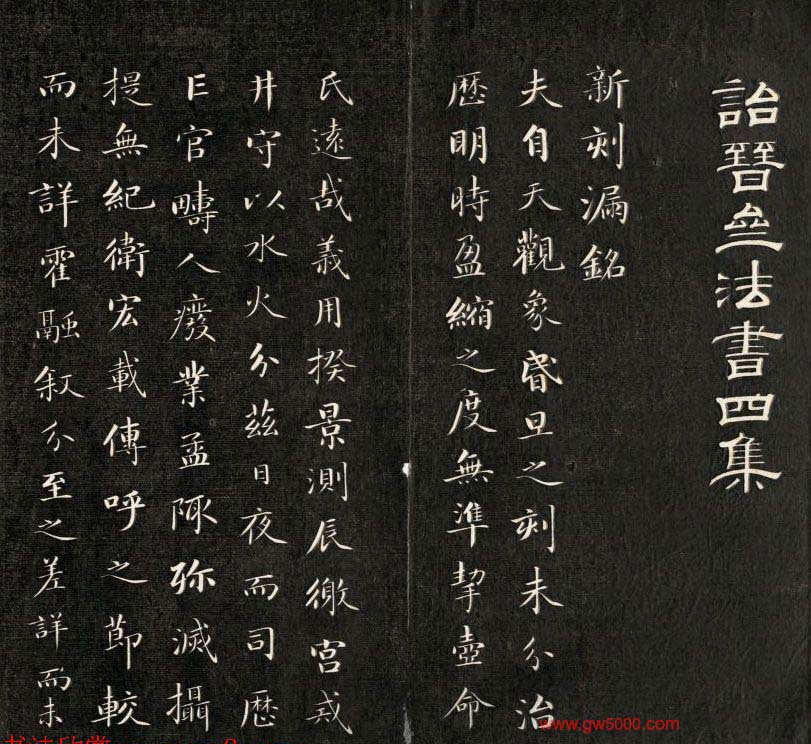 詒晉亝法書四集
新刻漏銘
夫自天觀象昬旦之刻未分治
歷明時盈縮之度無準挈壺命
氏遠哉義用揆景測辰徼宮戒
井守以水火分茲日夜而司歷
亡官疇人廢業孟陬殄滅攝
提無紀衛宏載傳呼之節較
而未詳霍融叙分至之差詳而未
www.gw5000.com